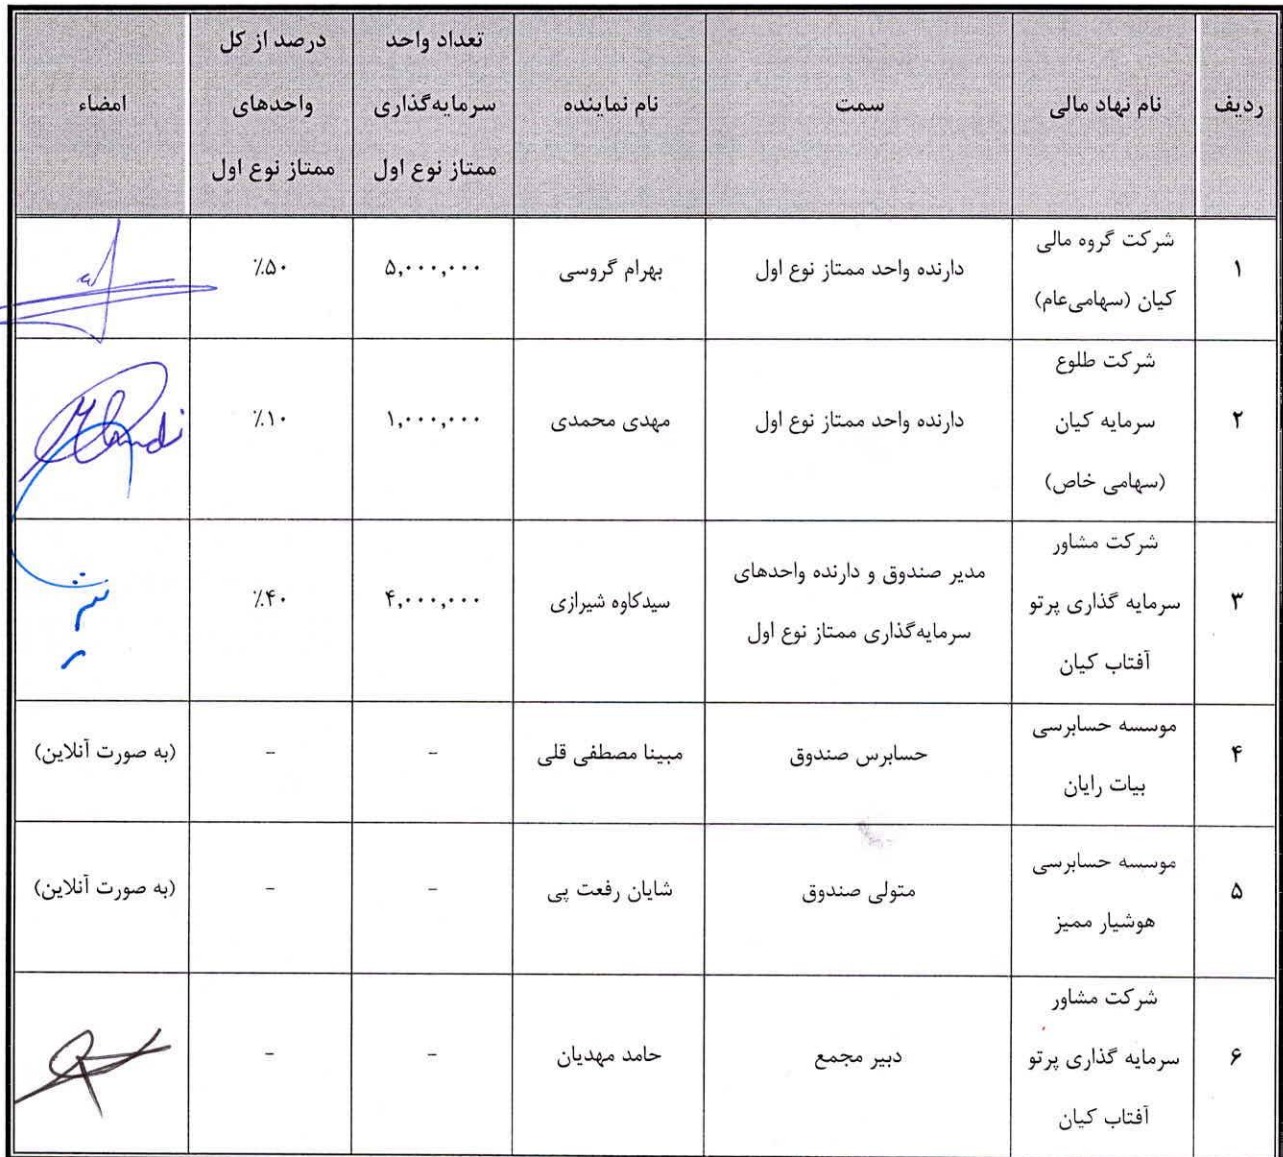 ردیف
نام نهاد مالی
سمت
نام نماینده
تعداد واحد
سرمایه‌گذاری
ممتاز نوع اول
درصد از کل
واحدهای
ممتاز نوع اول
امضاء
۱
شرکت گروه مالی
کیان (سهامی‌عام)
دارنده واحد ممتاز نوع اول
بهرام گروسی
۵,۰۰۰,۰۰۰
٪۵۰
۲
شرکت طلوع
سرمایه کیان
(سهامی خاص)
دارنده واحد ممتاز نوع اول
مهدی محمدی
۱,۰۰۰,۰۰۰
٪۱۰
۳
شرکت مشاور
سرمایه گذاری پرتو
آفتاب کیان
مدیر صندوق و دارنده واحدهای
سرمایه‌گذاری ممتاز نوع اول
سیدکاوه شیرازی
۴,۰۰۰,۰۰۰
٪۴۰
۴
موسسه حسابرسی
بیات رایان
حسابرس صندوق
مبینا مصطفی قلی
-
-
(به صورت آنلاین)
۵
موسسه حسابرسی
هوشیار ممیز
متولی صندوق
شایان رفعت پی
-
-
(به صورت آنلاین)
۶
شرکت مشاور
سرمایه گذاری پرتو
آفتاب کیان
دبیر مجمع
حامد مهدیان
-
-